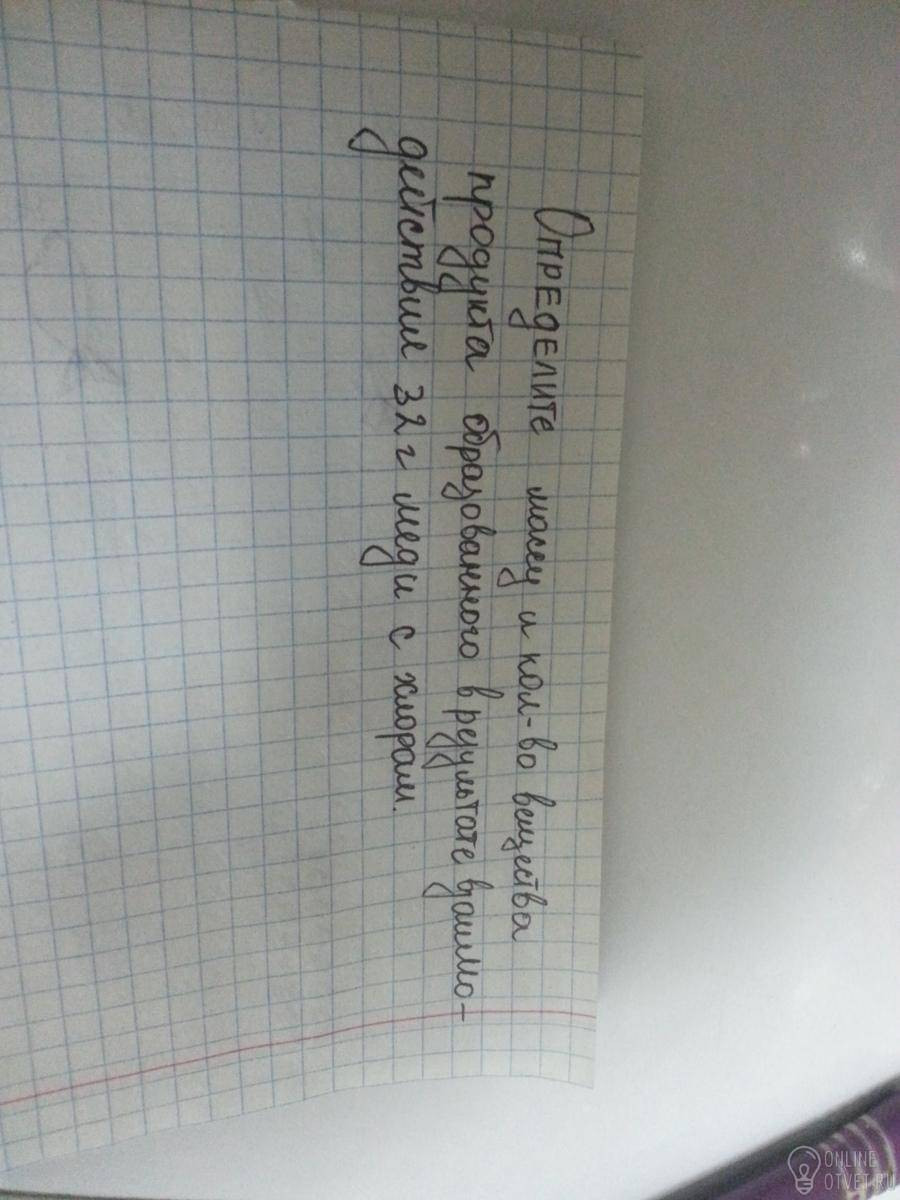 Определите массу и кол-во вещества
продукта образованного в результате взаимо-
действия 32 г меди с хлорам.
ONLINE
OTVET.RU